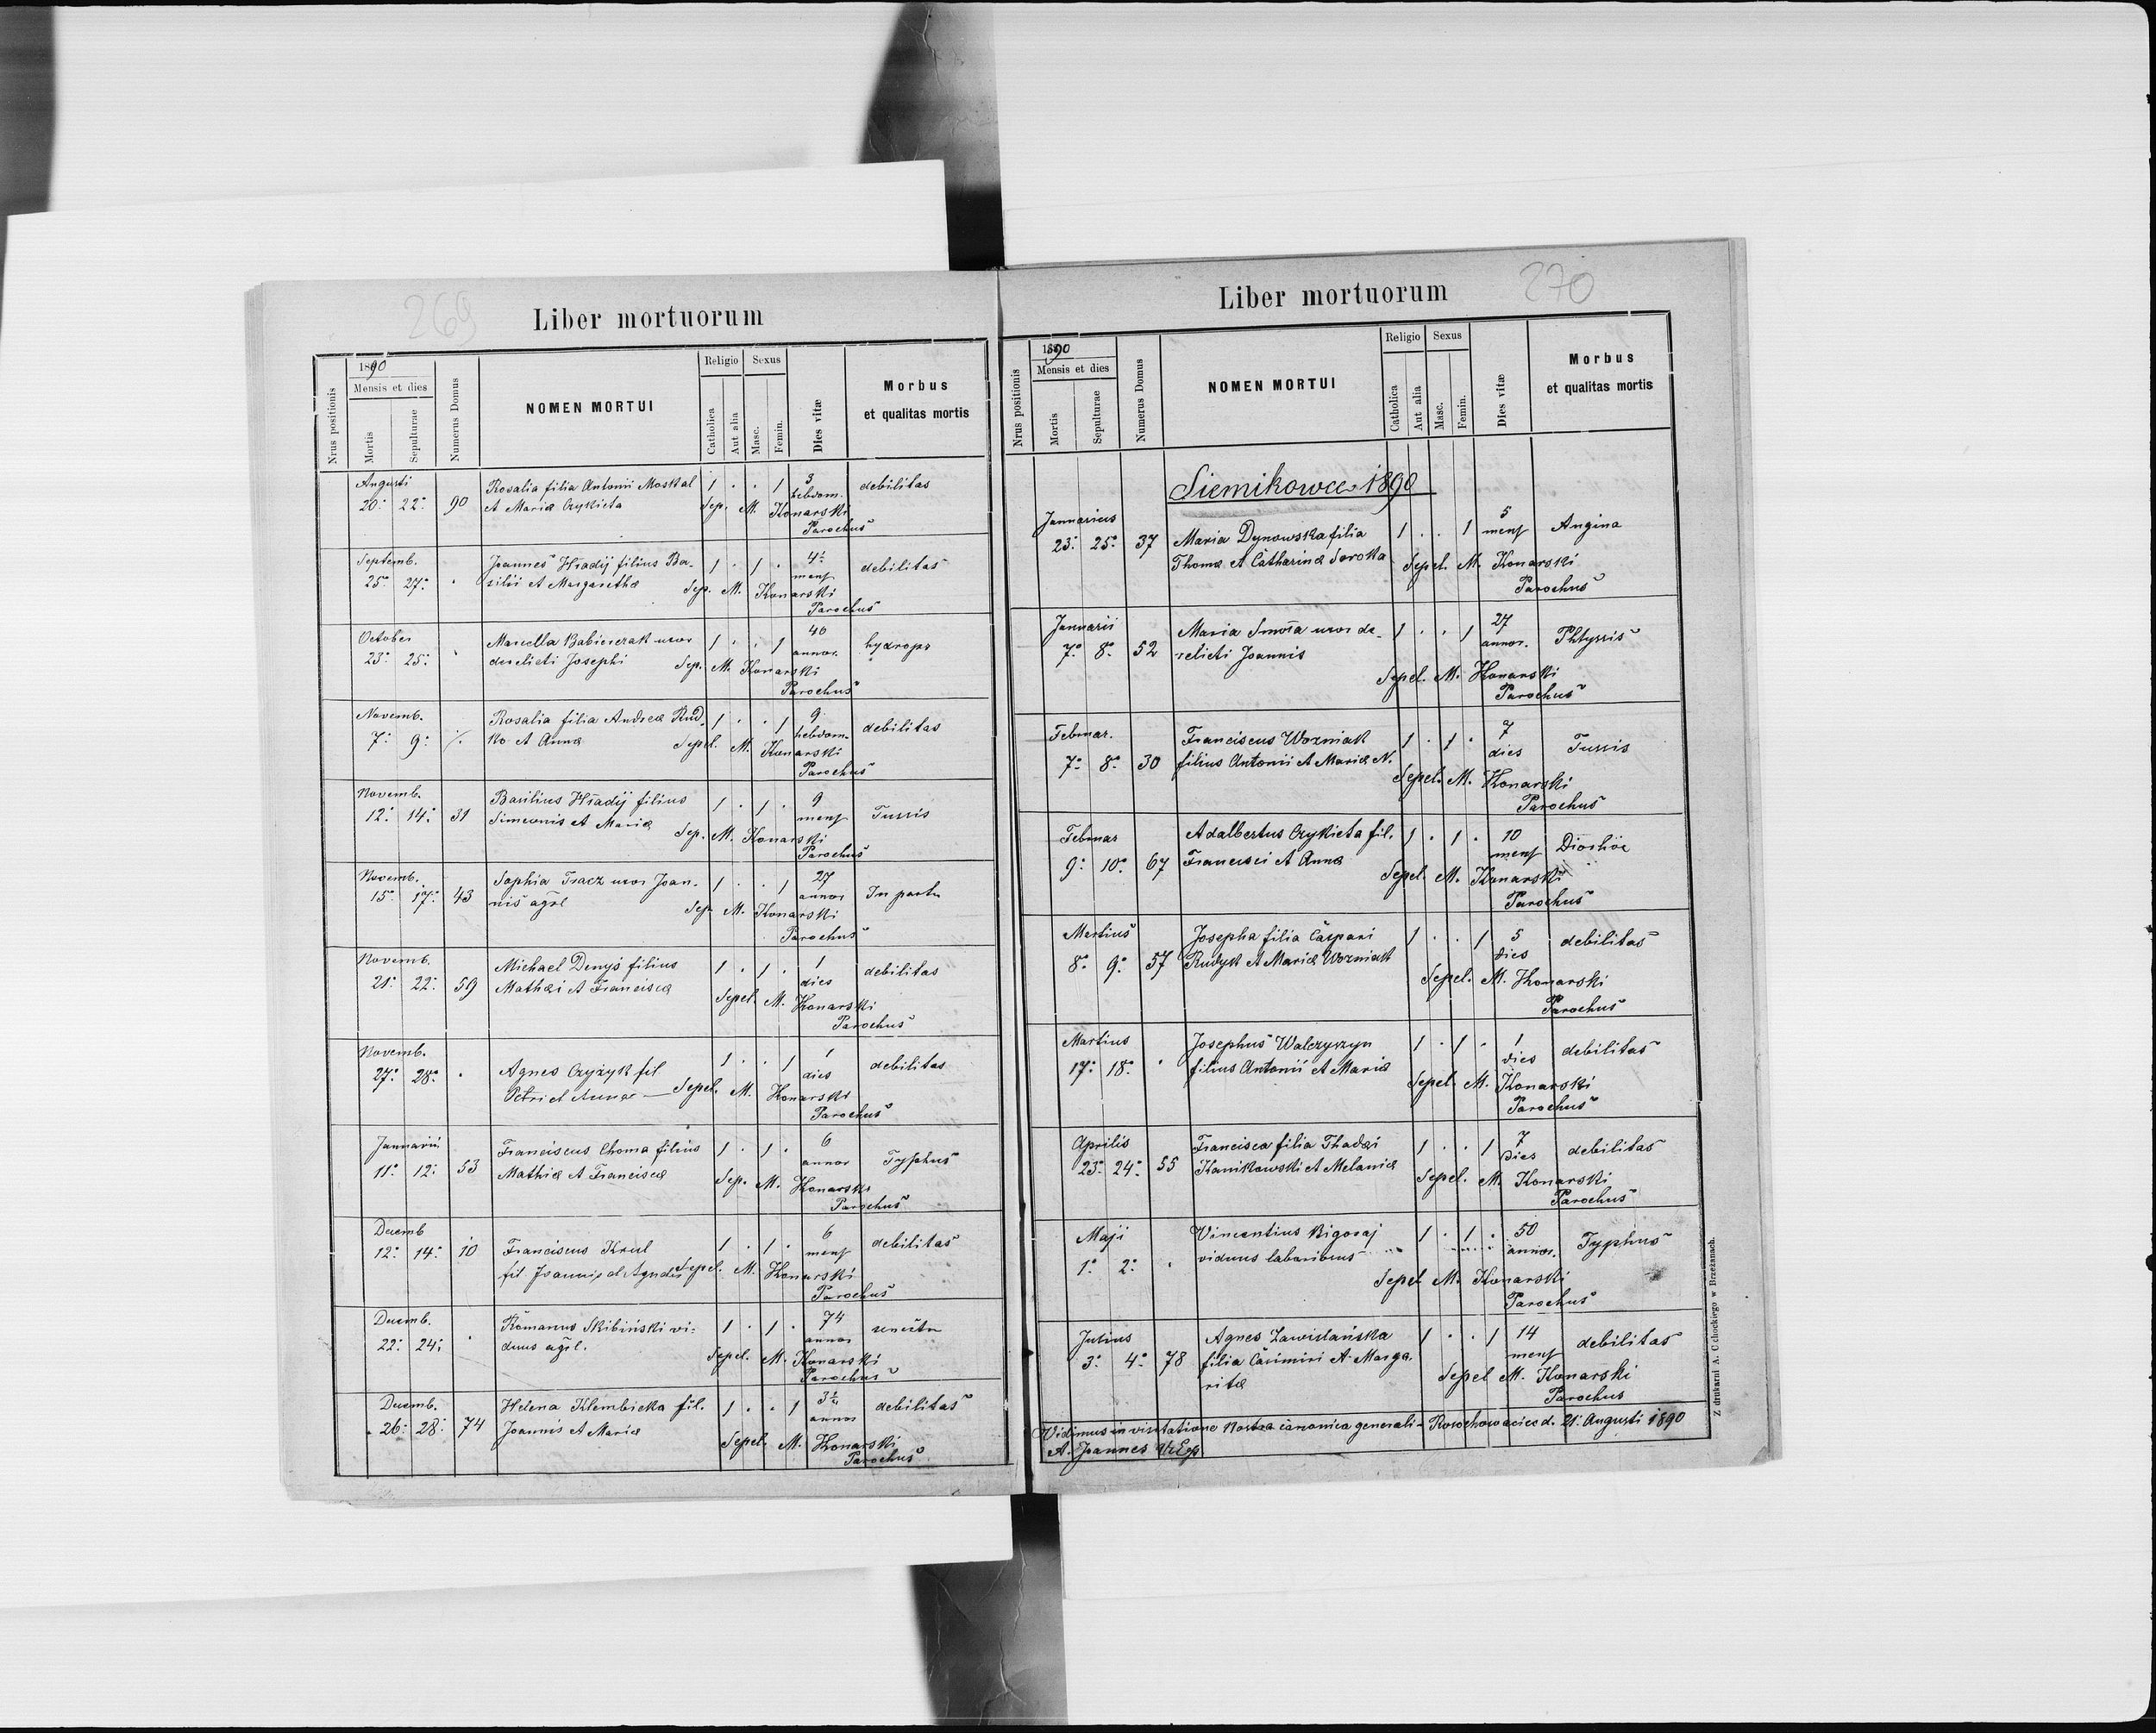 269
Liber mortuorum
Nrus positionis
1890
Mensis et dies
Mortis
Sepulturae
Numerus Domus
NOMEN MORTUI
Religio
Catholica
Aut alia
Sexus
Masc.
Femin.
Dies vitæ
Morbus
et qualitas mortis
Augusti 20: 22: 90 Rosalia filia Antonii Moskal 1 . . 1 3 hebdom. debilitas
et Mariæ Czykieta Sep. M. Konarski
Parochus
Septemb. 25: 27: Joannes Hradij filius Ba- 1 . 1 . 4½ mens debilitas
silii et Margarethæ Sep. M. Konarski
Parochus
October 23: 25: Marcella Babierczak uxor 1 . . 1 40 annor. hydrops
derelicti Josephi Sep. M. Konarski
Parochus
Novemb. 7: 9: Rosalia filia Andreæ Rud- 1 . . 1 9 hebdom. debilitas
ko et Annæ Sepel. M. Konarski
Parochus
Novemb. 12: 14: 31 Basilius Hradij filius 1 . 1 . 9 mens Tussis
Simeonis et Mariæ Sep. M. Konarski
Parochus
Novemb. 15: 17: 43 Sophia Tracz uxor Joan- 1 . . 1 27 annor In partu
nis agrl Sep. M. Konarski
Parochus
Novemb. 21: 22: 59 Michael Denys filius 1 . 1 . 1 dies debilitas
Mathæi et Franciscæ Sepel. M. Konarski
Parochus
Novemb. 27: 28: Agnes Czyżyk fil 1 . . 1 1 dies debilitas
Petri et Annæ Sepel. M. Konarski
Parochus
Januarii 11: 12: 53 Franciscus Choma filius 1 . 1 . 6 annor Typhus
Mathiæ et Franciscæ Sep. M. Konarski
Parochus
Decemb 12: 14: 10 Franciscus Krul 1 . 1 . 6 mens debilitas
fil. Joannis et Agnetis Sepel. M. Konarski
Parochus
Decemb. 22: 24: Romanus Skibiński vi- 1 . 1 . 74 annor
duus agrl. Sepel. M. Konarski
Parochus
Decemb. 26: 28: 74 Helena Klembicka fil. 1 . . 1 3½ annor debilitas
Joannis et Mariæ Sepel. M. Konarski
Parochus
270
Liber mortuorum
Nrus positionis
1890
Mensis et dies
Mortis
Sepulturae
Numerus Domus
NOMEN MORTUI
Religio
Catholica
Aut alia
Sexus
Masc.
Femin.
Dies vitæ
Morbus
et qualitas mortis
Siemikowce 1890
Januarius 23: 25: 37 Maria Dynowska filia 1 . . 1 5 mens Angina
Thomæ et Catharinæ Soroka Sepel. M. Konarski
Parochus
Januarii 7: 8: 52 Maria Smota uxor de- 1 . . 1 27 annor. Phtyssis
relicti Joannis Sepel. M. Konarski
Parochus
Februar. 7: 8: 30 Franciscus Wozniak 1 . 1 . 7 dies Tussis
filius Antonii et Mariæ N. Sepel. M. Konarski
Parochus
Februar 9: 10: 67 Adalbertus Czykieta fil. 1 . 1 . 10 mens
Francisci et Annæ Sepel. M. Konarski
Parochus
Martius 8: 9: 57 Josepha filia Caspari 1 . . 1 5 dies debilitas
Rudyk et Mariæ Wozniak Sepel. M. Konarski
Parochus
Martius 17: 18: Josephus Walczyszyn 1 . 1 . 1 dies debilitas
filius Antonii et Mariæ Sepel. M. Konarski
Parochus
Aprilis 23: 24: 55 Francisca filia Thadæi 1 . . 1 7 dies debilitas
Kanikowski et Melaniæ Sepel. M. Konarski
Parochus
Maji 1: 2: Vincentius Bigoraj 1 . 1 . 50 annor. Typhus
viduus Sepel M. Konarski
Parochus
Julius 3: 4: 78 Agnes Zawislańska 1 . . 1 14 mens debilitas
filia Casimiri et Marga-
ritæ Sepel M. Konarski
Parochus
Vidimus in visitatione Nostra canonica generali - d. 21: Augusti 1890
Joannes
Z drukarni A. Cichockiego w Brzeżanach.